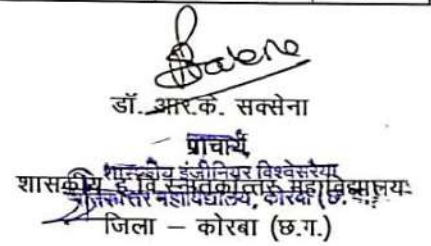 Saxena
डॉ. आर.के. सक्सेना
प्राचार्य
शासकीय इंजीनियर विश्वेसरैया
शासकीय इ.वि.स्नातकोत्तर महाविद्यालय
स्नातकोत्तर महाविद्यालय, कोरबा (छ.ग.)
जिला – कोरबा (छ.ग.)